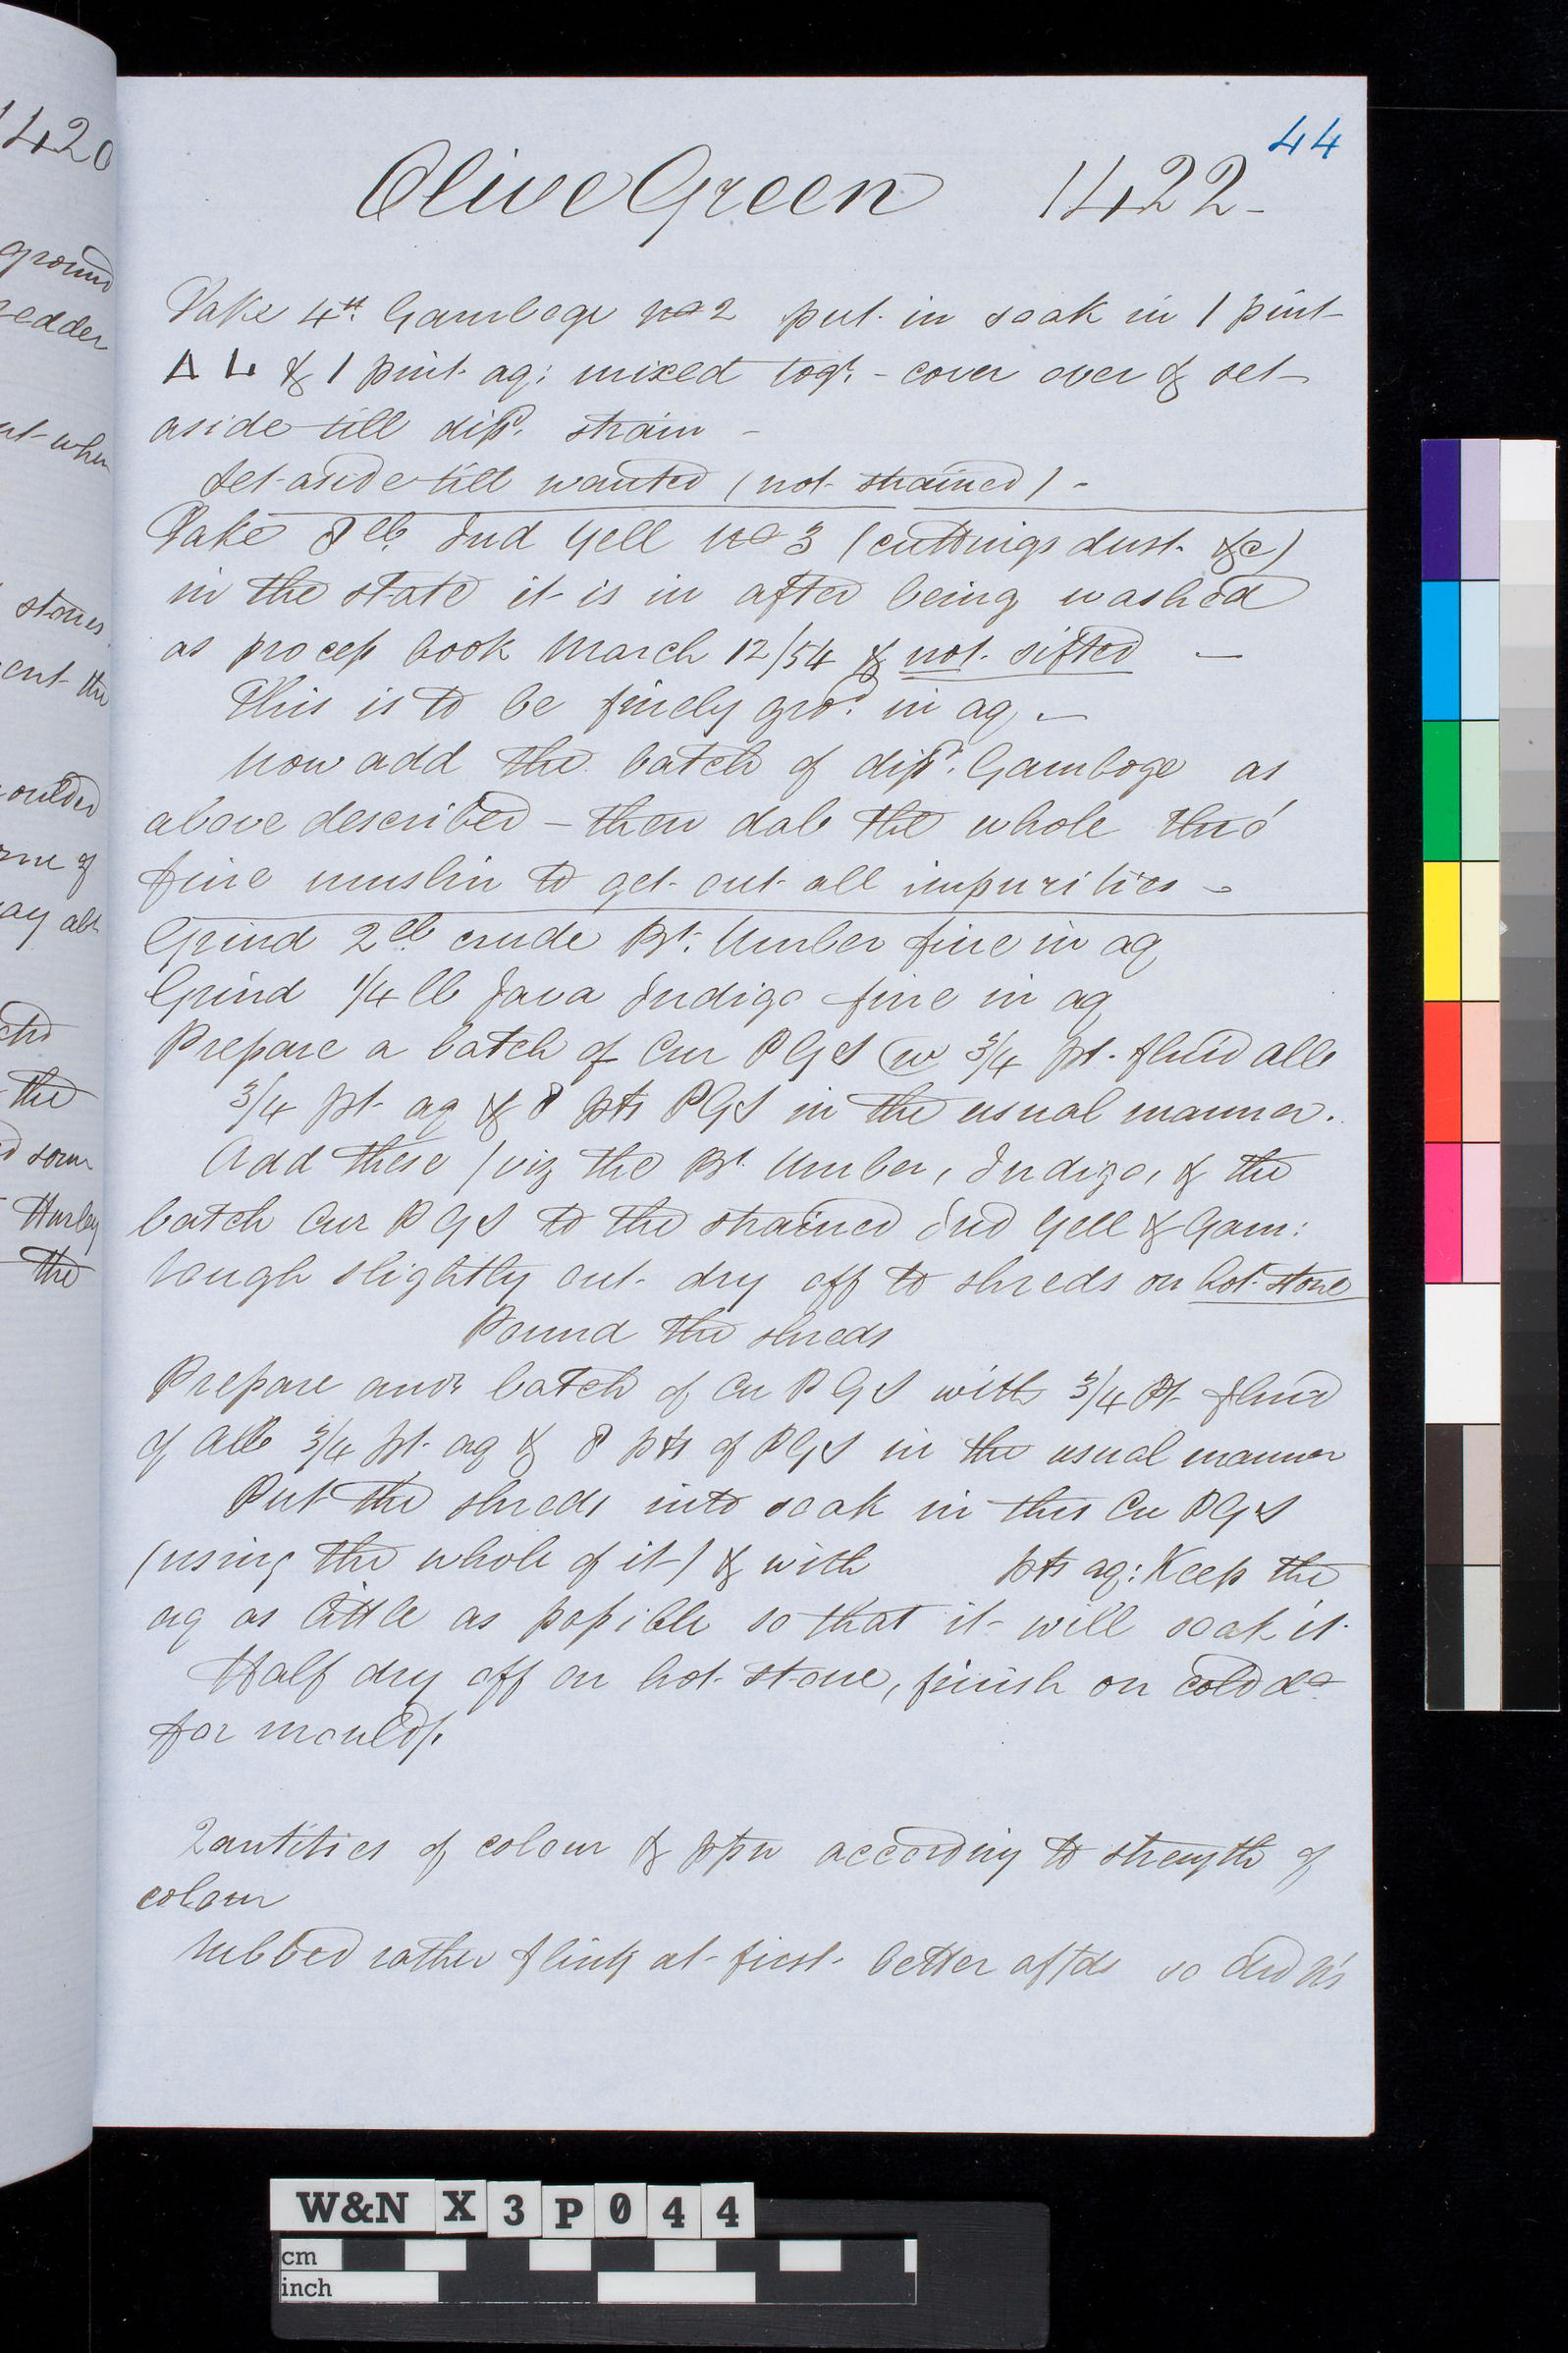 1420
ground
redder
ut when
stones
ent the
oulded
ome of
ay alb
cted
the
d som
Hurley
the
44
Olive Green 1422-
Take 4 lb Gamboge No 2 put in soak in 1 pint
& 1 pint aq: mixed togr. - cover over & set
aside till dissd. strain -
Set aside till wanted (not strained) -
Take 8 lb. Ind Yell No 3 (cuttings dust &c)
in the state it is in after being washed
as process book March 12/54 & not sifted -
This is to be finely grod. in aq -
Now add the batch of dissd. Gamboge as
above described - then dab the whole thro'
fine muslin to get out all impurities -
Grind 2 lb crude Bt. Umber fine in aq
Grind 1/4 lb Java Indigo fine in aq
Prepare a batch of Cur PGS w 3/4 pt. fluid alb
3/4 pt aq & 8 pts PGS in the usual manner.
Add these (viz the Bt. Umber, Indigo, & the
batch Cur PGS to the strained Ind Yell & Gam:
Tough slightly out dry off to shreds on hot stone
Pound the shreds
Prepare anor batch of Cu PGS with 3/4 Pt fluid
of alb 3/4 pt aq & 8 pts of PGS in the usual manner
Put the shreds into soak in this Cu PGS
(using the whole of it) & with pts aq: Keep the
aq as little as possible so that it will soak it.
Half dry off on hot stone, finish on cold do
for mouldg.
2antities of colour & pptn according to strength of
colour
Rubbed rather flinty at first better aftds so did N's
W&N X 3 P 0 4 4
cm
inch